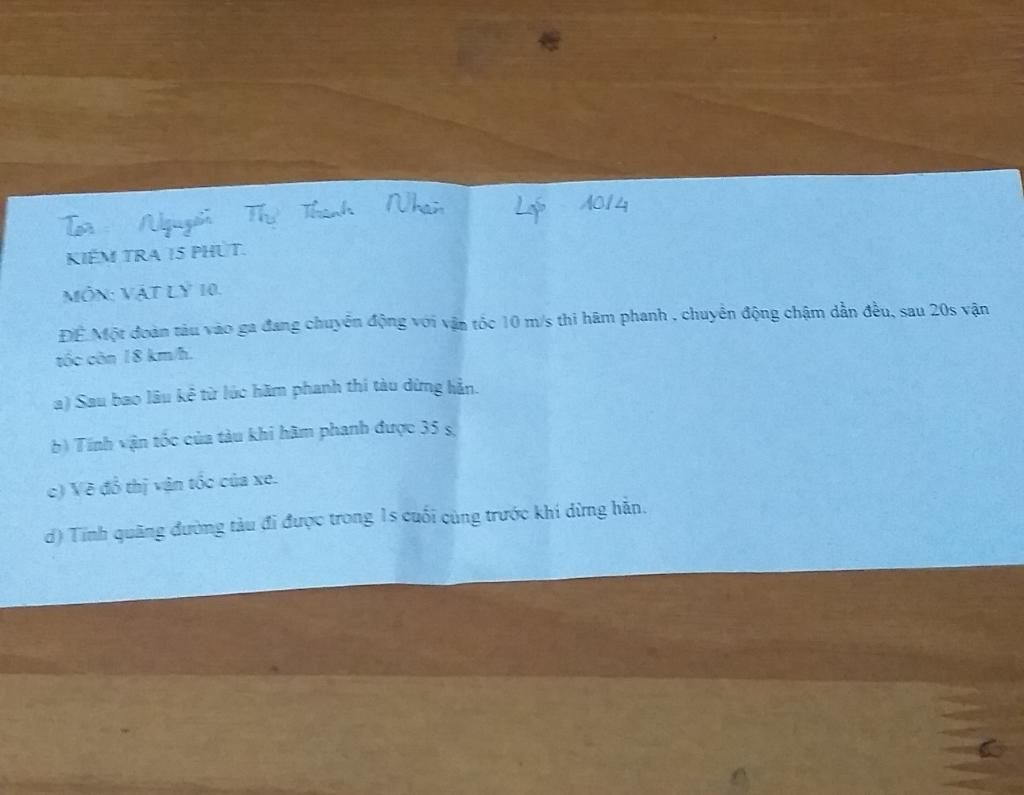 Tên: Nguyễn Thị Thanh Nhàn Lớp 10/4
KIỂM TRA 15 PHÚT.
MÔN: VẬT LÝ 10.
ĐỀ.Một đoàn tàu vào ga đang chuyển động với vận tốc 10 m/s thì hãm phanh , chuyển động chậm dần đều, sau 20s vận
tốc còn 18 km/h.
a) Sau bao lâu kể từ lúc hãm phanh thì tàu dừng hẳn.
b) Tính vận tốc của tàu khi hãm phanh được 35 s.
c) Vẽ đồ thị vận tốc của xe.
d) Tính quãng đường tàu đi được trong 1s cuối cùng trước khi dừng hẳn.